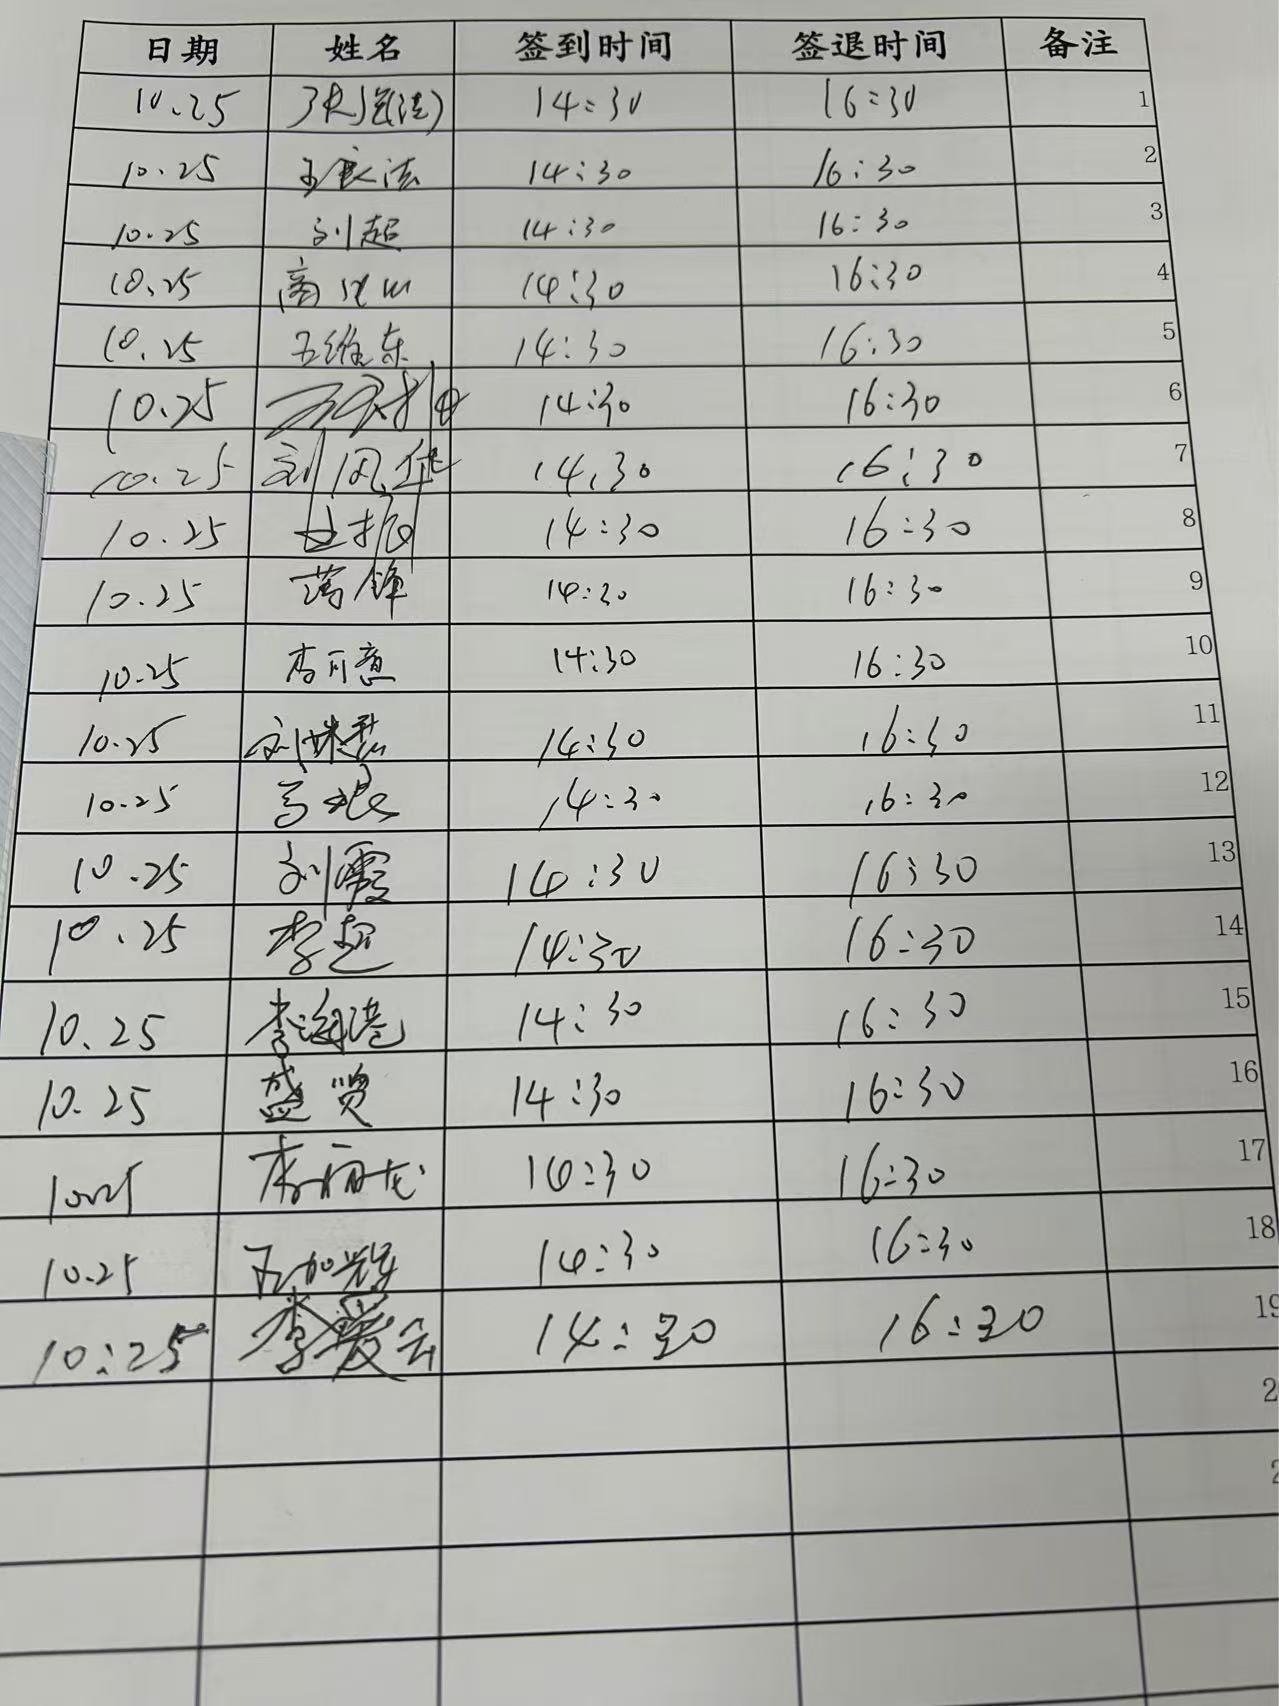 日期 姓名 签到时间 签退时间 备注
10.25 14:30 16:30 1
10.25 王长法 14:30 16:30 2
10.25 刘超 14:30 16:30 3
10.25 商 14:30 16:30 4
10.25 王维东 14:30 16:30 5
10.25 14:30 16:30 6
10.25 刘风华 14:30 16:30 7
10.25 14:30 16:30 8
10.25 14:30 16:30 9
10.25 李可意 14:30 16:30 10
10.25 刘 14:30 16:30 11
10.25 14:30 16:30 12
10.25 刘霞 14:30 16:30 13
10.25 李超 14:30 16:30 14
10.25 李海港 14:30 16:30 15
10.25 盛贤 14:30 16:30 16
10.25 李丽龙 14:30 16:30 17
10.25 王加辉 14:30 16:30 18
10:25 李爱云 14:30 16:30 19
2
2